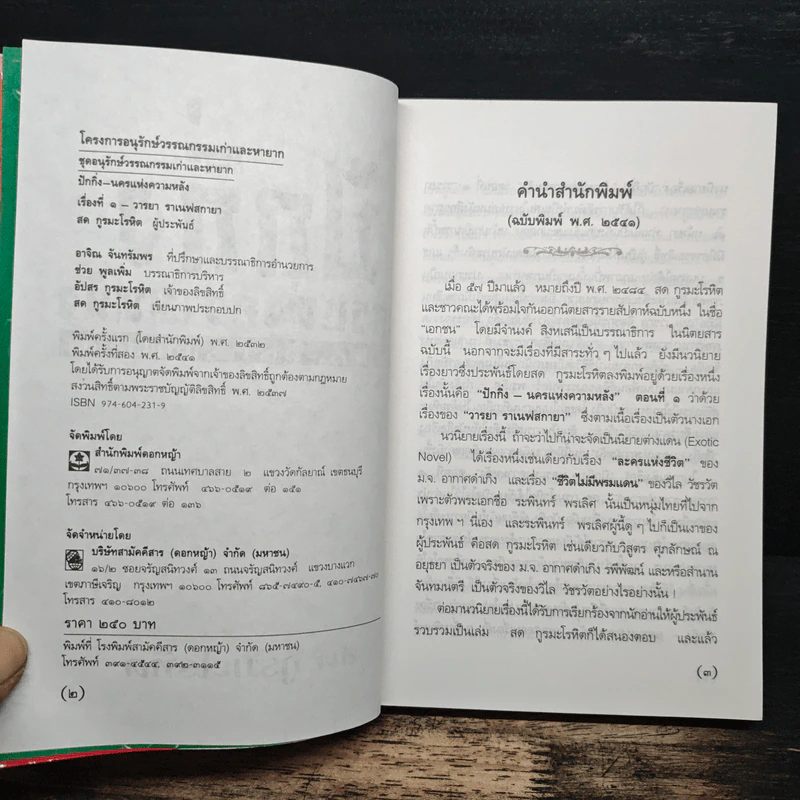 โครงการอนุรักษ์วรรณกรรมเก่าและหายาก
ชุดอนุรักษ์วรรณกรรมเก่าและหายาก
ปักกิ่ง–นครแห่งความหลัง
เรื่องที่ ๑ – วารยา ราเนฟสกายา
สด กูรมะโรหิต ผู้ประพันธ์
อาจิณ จันทรัมพร ที่ปรึกษาและบรรณาธิการอำนวยการ
ช่วย พูลเพิ่ม บรรณาธิการบริหาร
อัปสร กูรมะโรหิต เจ้าของลิขสิทธิ์
สด กูรมะโรหิต เขียนภาพประกอบปก
พิมพ์ครั้งแรก (โดยสำนักพิมพ์) พ.ศ. ๒๕๓๒
พิมพ์ครั้งที่สอง พ.ศ. ๒๕๔๑
โดยได้รับการอนุญาตจัดพิมพ์จากเจ้าของลิขสิทธิ์ถูกต้องตามกฎหมาย
สงวนสิทธิ์ตามพระราชบัญญัติลิขสิทธิ์ พ.ศ. ๒๕๓๗
ISBN 974-604-231-9
จัดพิมพ์โดย
สำนักพิมพ์ดอกหญ้า
๗๑/๓๗-๓๘ ถนนเทศบาลสาย ๒ แขวงวัดกัลยาณ์ เขตธนบุรี
กรุงเทพฯ ๑๐๖๐๐ โทรศัพท์ ๔๖๖-๐๕๑๙ ต่อ ๑๕๑
โทรสาร ๔๖๖-๐๕๑๙ ต่อ ๑๓๖
จัดจำหน่ายโดย
บริษัทสามัคคีสาร (ดอกหญ้า) จำกัด (มหาชน)
๑๖/๒ ซอยจรัญสนิทวงศ์ ๑๓ ถนนจรัญสนิทวงศ์ แขวงบางแวก
เขตภาษีเจริญ กรุงเทพฯ ๑๐๖๐๐ โทรศัพท์ ๘๖๕-๗๔๙๐-๕,
โทรสาร ๔๑๐-๘๐๑๒
ราคา ๒๕๐ บาท
พิมพ์ที่ โรงพิมพ์สามัคคีสาร (ดอกหญ้า) จำกัด (มหาชน)
โทรศัพท์ ๓๙๑-๔๕๔๔, ๓๙๒-๓๑๑๕
(๒)
คำนำสำนักพิมพ์
(ฉบับพิมพ์ พ.ศ. ๒๕๔๑)
เมื่อ ๕๗ ปีมาแล้ว หมายถึงปี พ.ศ. ๒๔๘๔ สด กูรมะโรหิต
และชาวคณะได้พร้อมใจกันออกนิตยสารรายสัปดาห์ฉบับหนึ่ง ในชื่อ
"เอกชน" โดยมีจำนงค์ สิงหเสนีเป็นบรรณาธิการ ในนิตยสาร
ฉบับนี้ นอกจากจะมีเรื่องที่มีสาระทั่ว ๆ ไปแล้ว ยังมีนวนิยาย
เรื่องยาวซึ่งประพันธ์โดยสด กูรมะโรหิตลงพิมพ์อยู่ด้วยเรื่องหนึ่ง
เรื่องนั้นคือ "ปักกิ่ง – นครแห่งความหลัง" ตอนที่ ๑ ว่าด้วย
เรื่องของ "วารยา ราเนฟสกายา" ซึ่งตามเนื้อเรื่องเป็นตัวนางเอก
นวนิยายเรื่องนี้ ถ้าจะว่าไปก็น่าจะจัดเป็นนิยายต่างแดน (Exotic
Novel) ได้เรื่องหนึ่งเช่นเดียวกับเรื่อง "ละครแห่งชีวิต" ของ
ม.จ. อากาศดำเกิง และเรื่อง "ชีวิตไม่มีพรมแดน" ของวิไล วัชรวัต
เพราะตัวพระเอกชื่อ ระพินทร์ พรเลิศ นั้นเป็นหนุ่มไทยที่ไปจาก
กรุงเทพ ฯ นี่เอง และระพินทร์ พรเลิศผู้นี้ดู ๆ ไปก็เป็นเงาของ
ผู้ประพันธ์ คือสด กูรมะโรหิต เช่นเดียวกับวิสูตร ศุภลักษณ์ ณ
อยุธยา เป็นตัวจริงของ ม.จ. อากาศดำเกิง รพีพัฒน์ และหรือสำนาน
จันทมนตรี เป็นตัวจริงของวิไล วัชรวัตอย่างไรอย่างนั้น !
ต่อมานวนิยายเรื่องนี้ได้รับการเรียกร้องจากนักอ่านให้ผู้ประพันธ์
รวบรวมเป็นเล่ม สด กูรมะโรหิตก็ได้สนองตอบ และแล้ว
(๓)